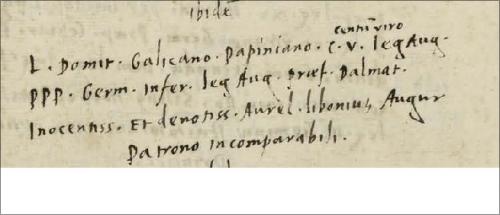 ibidē
centūviro
L. Domit. Galicano. Papiniano. C. V. leg Aug.
PPP. Germ. Infer. leg Aug. Præf. Dalmat.
Inocentiss. Et devotiss. Aurel. libonius, Augur
Patrono incomparabili.